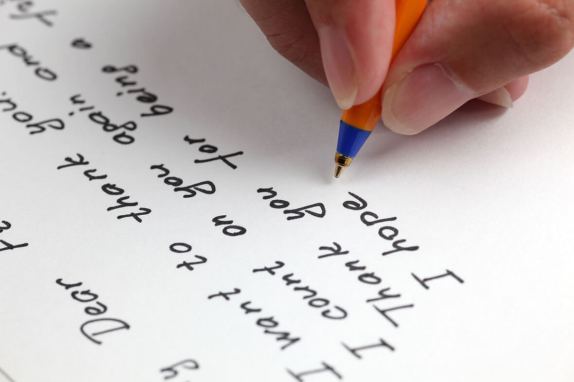 y Dear
I want to thank you.
I count on you again and
Thank you for being a
I hope